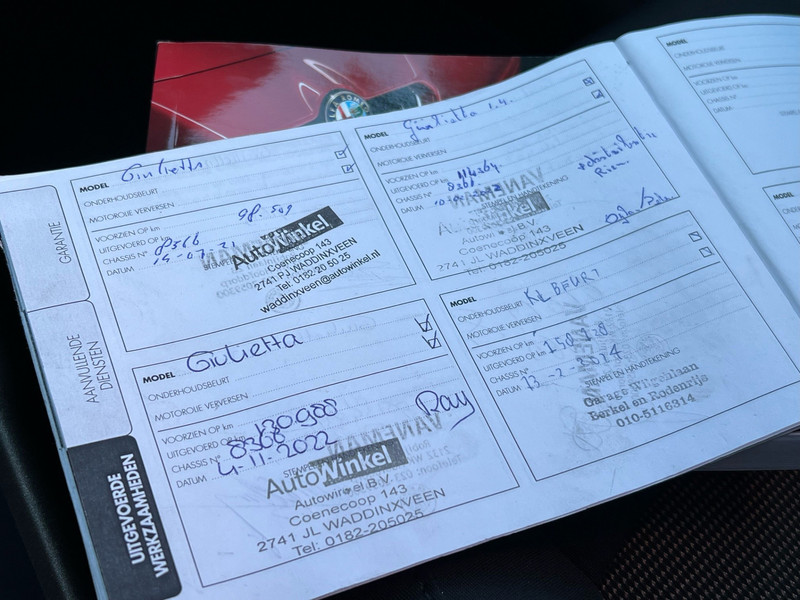 GARANTIE
AANVULLENDE
DIENSTEN
UITGEVOERDE
WERKZAAMHEDEN
MODEL Giulietta
ONDERHOUDSBEURT
MOTOROLIE VERVERSEN
VOORZIEN OP km
UITGEVOERD OP km 98.509
CHASSIS N° 8366
DATUM 15-07-21
AutoWinkel
Coenecoop 143
2741 PJ WADDINXVEEN
Tel: 0182-20 50 25
waddinxveen@autowinkel.nl
MODEL Giulietta 1.4.
ONDERHOUDSBEURT
MOTOROLIE VERVERSEN
VOORZIEN OP km
UITGEVOERD OP km 114264
CHASSIS N° 8366
DATUM
STEMPEL EN HANDTEKENING
Autowinkel B.V.
Coenecoop 143
2741 JL WADDINXVEEN
Tel: 0182-205025
MODEL Giulietta
ONDERHOUDSBEURT
MOTOROLIE VERVERSEN
VOORZIEN OP km
UITGEVOERD OP km 130900
CHASSIS N° 8366
DATUM 4-11-2022
Ray
AutoWinkel
Autowinkel B.V.
Coenecoop 143
2741 JL WADDINXVEEN
Tel: 0182-205025
MODEL
ONDERHOUDSBEURT KL BEURT
MOTOROLIE VERVERSEN
VOORZIEN OP km
UITGEVOERD OP km
CHASSIS N°
DATUM 13-2-2024
STEMPEL EN HANDTEKENING
Garage Witgelaan
Berkel en Rodenrijs
010-5116314
MODEL
ONDERHOUDSBEURT
MOTOROLIE VERVERSEN
VOORZIEN OP km
UITGEVOERD OP km
CHASSIS N°
DATUM
MODEL